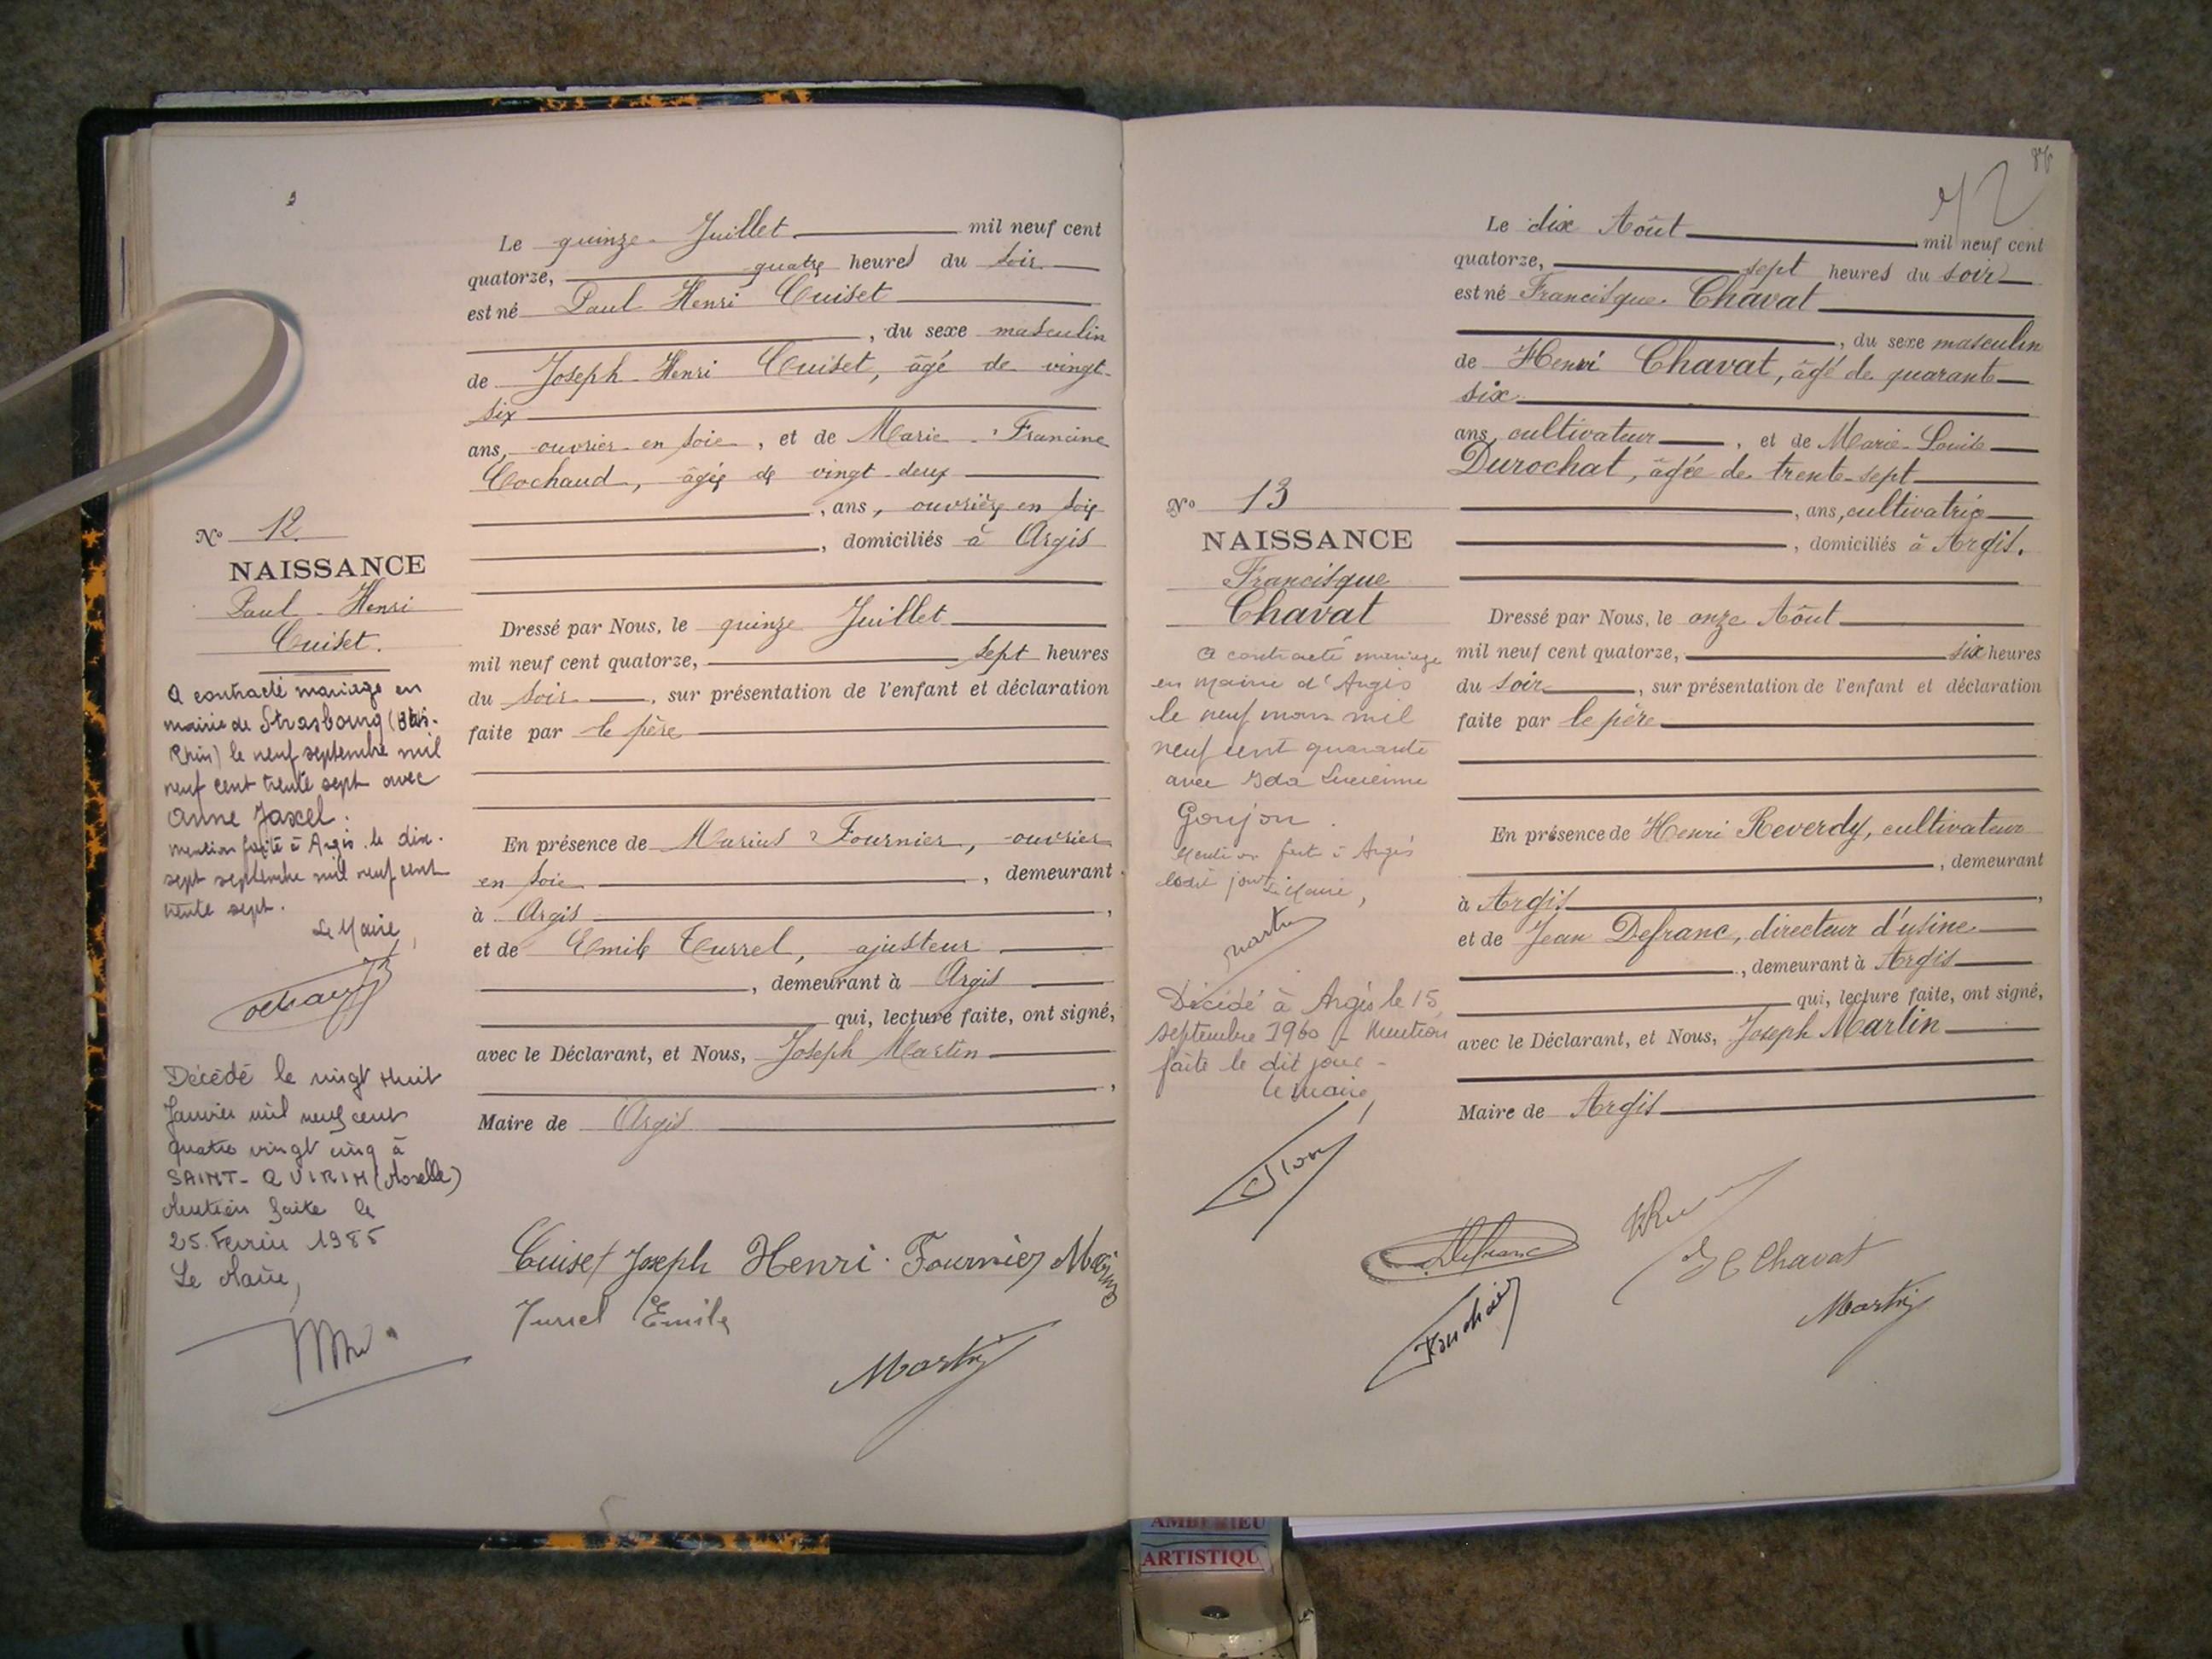 Le quinze Juillet mil neuf cent
quatorze, quatre heures du soir
est né Paul Henri Cuiset
, du sexe masculin
de Joseph Henri Cuiset, âgé de vingt-
six
ans, ouvrier en soie, et de Marie Francine
Cochaud, âgée de vingt deux
, ans, ouvrière en soie
, domiciliés à Argis
N° 12.
NAISSANCE
Paul Henri
Cuiset.
Dressé par Nous, le quinze Juillet
mil neuf cent quatorze, sept heures
du soir, sur présentation de l'enfant et déclaration
faite par le père
En présence de Marius Fournier, ouvrier
en soie, demeurant
à Argis,
et de Emile Turrel, ajusteur
, demeurant à Argis
qui, lecture faite, ont signé,
avec le Déclarant, et Nous, Joseph Martin
,
Maire de Argis
A contracté mariage en
mairie de Strasbourg (Bas-
Rhin) le neuf septembre mil
neuf cent trente sept avec
Anne Jaxel.
mention faite à Argis le dix-
sept septembre mil neuf cent
trente sept.
Le Maire,
Décédé le vingt huit
Janvier mil neuf cent
quatre vingt cinq à
SAINT-QUIRIN (Moselle)
Mention faite le
25 Février 1985
Le Maire,
Cuiset Joseph Henri Fournier Marius
Turrel Emile
Martin
Le dix Août mil neuf cent
quatorze, sept heures du soir
est né Francisque Chavat
, du sexe masculin
de Henri Chavat, âgé de quarant
six
ans, cultivateur, et de Marie-Louise
Durochat, âgée de trente-sept
, ans, cultivatrice
, domiciliés à Argis.
N° 13
NAISSANCE
Francisque
Chavat
Dressé par Nous, le onze Août
mil neuf cent quatorze, six heures
du soir, sur présentation de l'enfant et déclaration
faite par le père
En présence de Henri Reverdy, cultivateur
, demeurant
à Argis,
et de Jean Defranc, directeur d'usine
, demeurant à Argis
qui, lecture faite, ont signé,
avec le Déclarant, et Nous, Joseph Martin
Maire de Argis
A contracté mariage
en Mairie d'Argis
le neuf mars mil
neuf cent quarante
avec Ida Lucienne
Goujon.
Mention faite à Argis
ledit jour Le Maire,
Martin
Décédé à Argis le 15
septembre 1960 - Mention
faite le dit jour -
Le Maire,
Defranc
H Chavat
Martin
AMBERIEU
ARTISTIQU